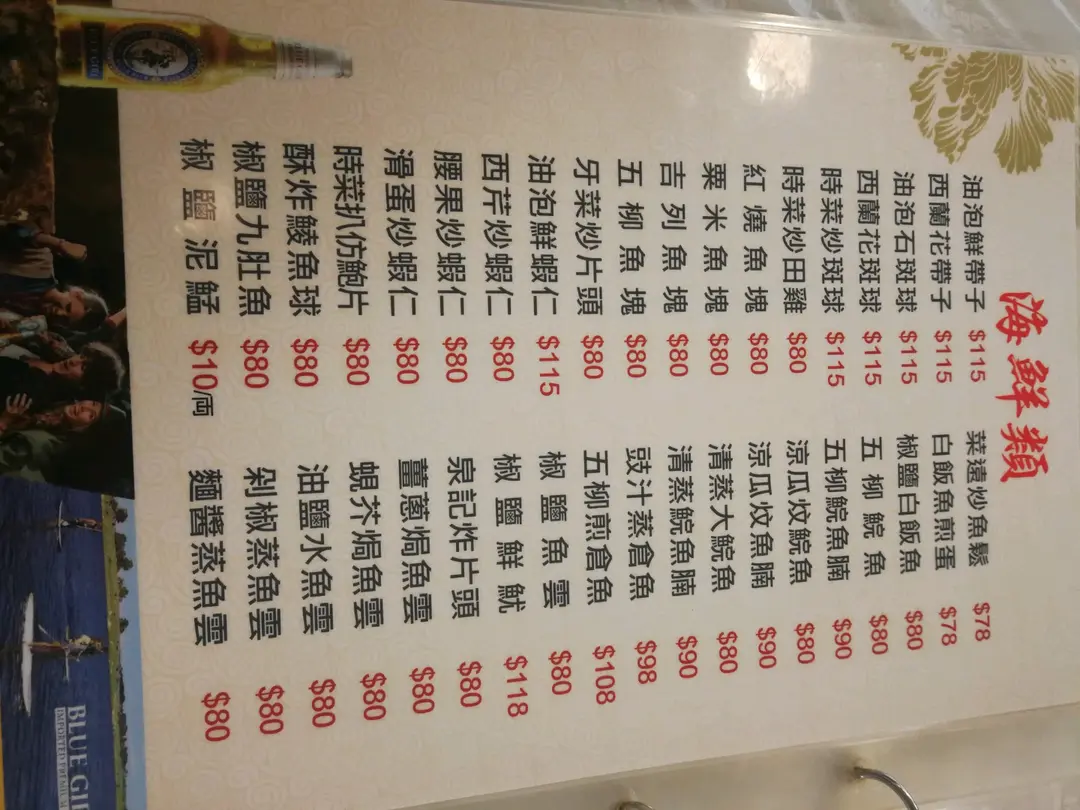 海鮮類
油泡鮮帶子 $115 菜遠炒魚鬆 $78
西蘭花帶子 $115 白飯魚煎蛋 $78
油泡石斑球 $115 椒鹽白飯魚 $80
西蘭花斑球 $115 五柳鯇魚 $80
時菜炒斑球 $115 五柳鯇魚腩 $90
時菜炒田雞 $80 涼瓜炆鯇魚 $80
紅燒魚塊 $80 涼瓜炆魚腩 $90
粟米魚塊 $80 清蒸大鯇魚 $80
吉列魚塊 $80 清蒸鯇魚腩 $90
五柳魚塊 $80 豉汁蒸倉魚 $98
牙菜炒片頭 $80 五柳煎倉魚 $108
油泡鮮蝦仁 $115 椒鹽魚雲 $80
西芹炒蝦仁 $80 椒鹽鮮魷 $118
腰果炒蝦仁 $80 泉記炸片頭 $80
滑蛋炒蝦仁 $80 薑蔥焗魚雲 $80
時菜扒仿鮑片 $80 蜆芥焗魚雲 $80
酥炸鯪魚球 $80 油鹽水魚雲 $80
椒鹽九肚魚 $80 剁椒蒸魚雲 $80
椒鹽泥鯭 $10/両 麵醬蒸魚雲 $80
BLUE GI
IMPORTED PREMIUM